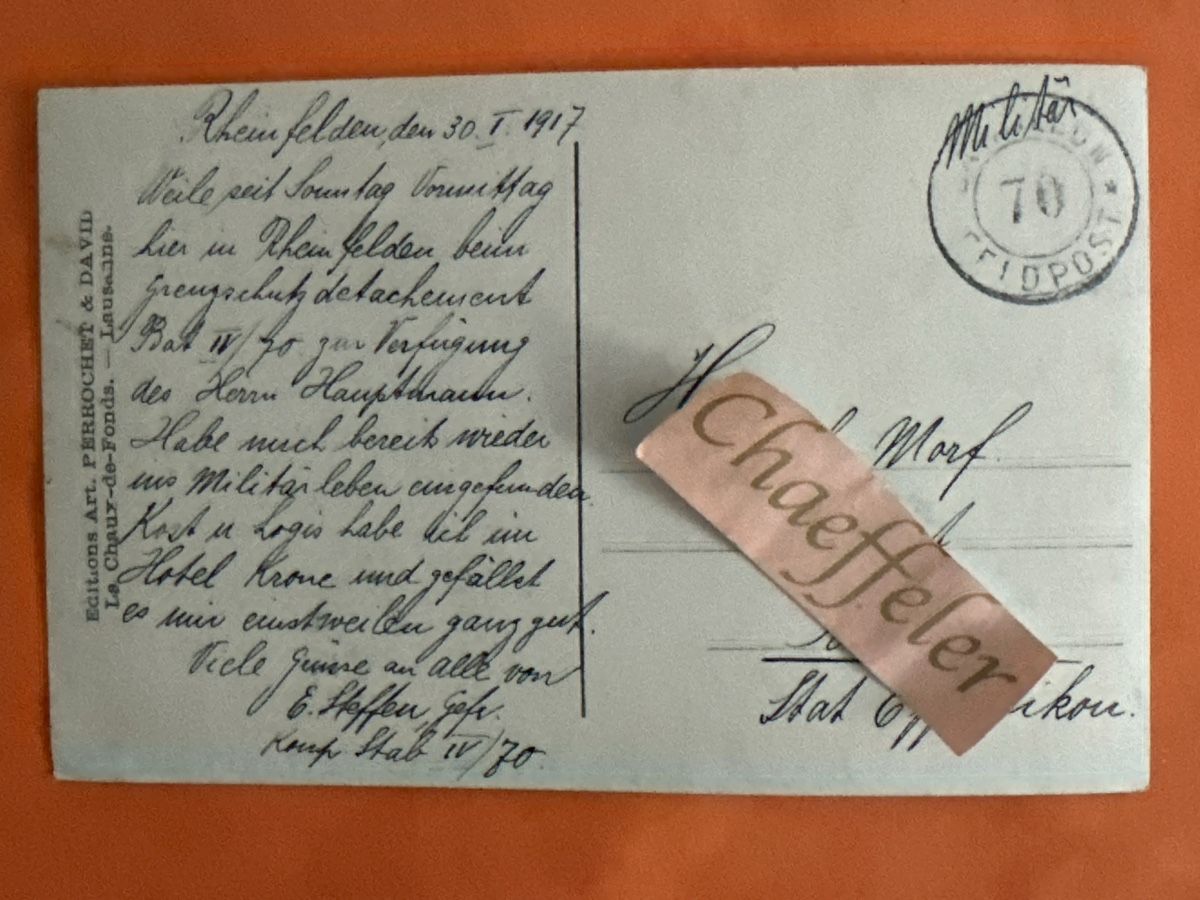 Editions Art. PERROCHET & DAVID
La Chaux-de-Fonds. — Lausanne.
Rheinfelden, den 30. I. 1917
Weile seit Sonntag Vormittag
hier in Rheinfelden beim
Grenzschutzdetachement
Bat IV/70 zur Verfügung
des Herrn Hauptmann.
Habe mich bereits wieder
ins Militärleben eingefunden.
Kost u Logis habe ich im
Hotel Krone und gefällt
es mir einstweilen ganz gut.
Viele Grüsse an alle von
E. Steffen, Gefr.
Komp. Stab IV/70.
Militär
70
FELDPOST
H
Morf.
Chaeffeler
Stat Eff ikon.